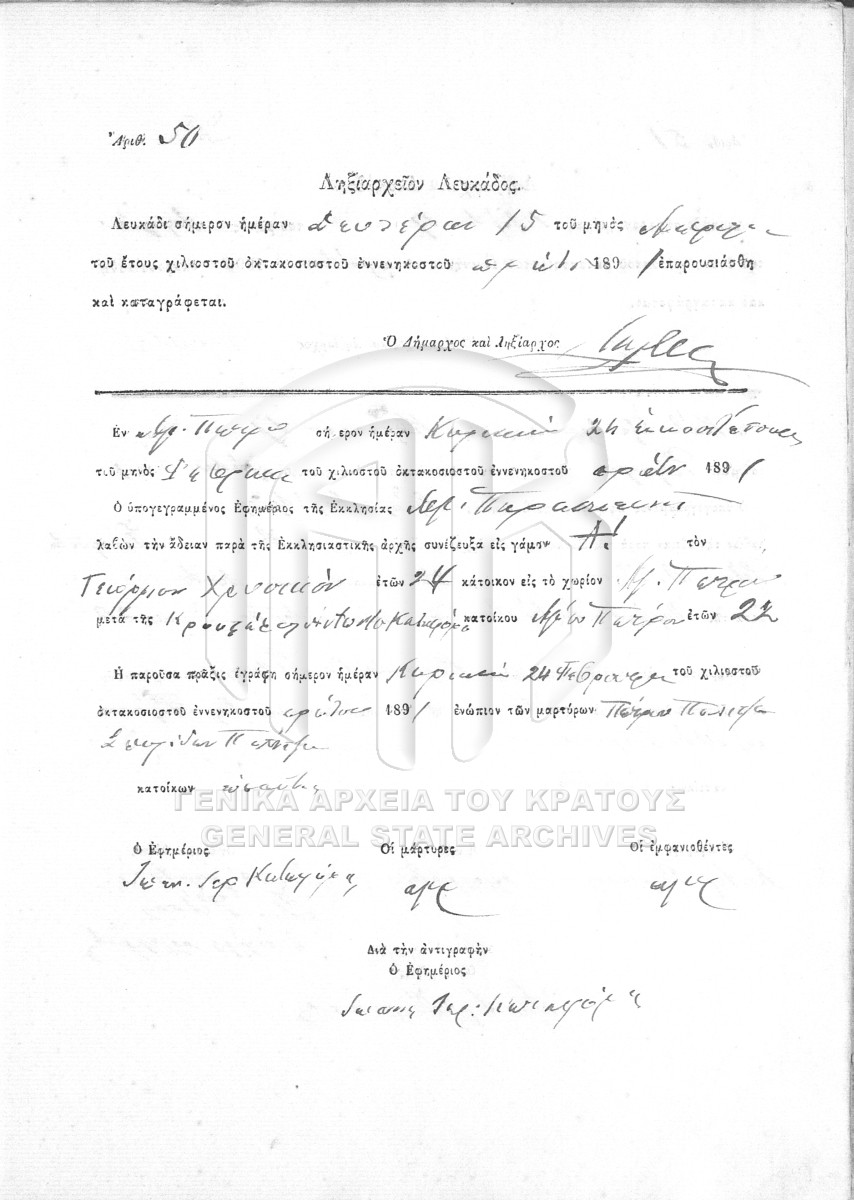 Ἀριθ. 50
Ληξιαρχεῖον Λευκάδος.
Λευκάδι σήμερον ἡμέραν Δευτέραν 15 τοῦ μηνὸς
τοῦ ἔτους χιλιοστοῦ ὀκτακοσιοστοῦ ἐννενηκοστοῦ πρώτου 1891 ἐπαρουσιάσθη
καὶ καταγράφεται.
Ὁ Δήμαρχος καὶ Ληξίαρχος
Ἐν Ἁγ. Πέτρῳ σήμερον ἡμέραν Κυριακὴ 24 εἰκοστὴ τετάρτη
τοῦ μηνὸς Φεβρουαρ. τοῦ χιλιοστοῦ ὀκτακοσιοστοῦ ἐννενηκοστοῦ πρώτου 1891
Ὁ ὑπογεγραμμένος Ἐφημέριος τῆς Ἐκκλησίας Ἁγ. Παρασκευή
λαβὼν τὴν ἄδειαν παρὰ τῆς Ἐκκλησιαστικῆς ἀρχῆς συνέζευξα εἰς γάμον Α! τὸν
Γεώργιον Χρυσικόν ἐτῶν 24 κάτοικον εἰς τὸ χωρίον Ἁγ. Πέτρου
μετὰ τῆς Κατηφόρη κατοίκου Ἁγίου Πέτρου ἐτῶν 22
Ἡ παροῦσα πρᾶξις ἐγράφη σήμερον ἡμέραν Κυριακὴ 24 Φεβρουαρ. τοῦ χιλιοστοῦ
ὀκτακοσιοστοῦ ἐννενηκοστοῦ πρώτου 1891 ἐνώπιον τῶν μαρτύρων Πέτρου
κατοίκων
ΓΕΝΙΚΑ ΑΡΧΕΙΑ ΤΟΥ ΚΡΑΤΟΥΣ
GENERAL STATE ARCHIVES
Ὁ Ἐφημέριος Οἱ μάρτυρες Οἱ ἐμφανισθέντες
Ἰωάν. Ἱερ Κατηφόρης
Διὰ τὴν ἀντιγραφὴν
Ὁ Ἐφημέριος
Ἰωάννης Ἱερ: Κατηφόρης